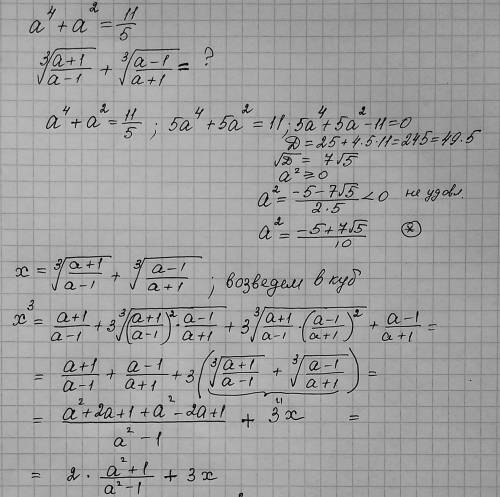 a⁴ + a² = 11/5
∛((a+1)/(a-1)) + ∛((a-1)/(a+1)) = ?
a⁴ + a² = 11/5 ; 5a⁴ + 5a² = 11 ; 5a⁴ + 5a² - 11 = 0
D = 25 + 4·5·11 = 245 = 49·5
√D = 7√5
a² ⩾ 0
a² = (-5 - 7√5)/(2·5) < 0 не удовл.
a² = (-5 + 7√5)/10 ⊛
x = ∛((a+1)/(a-1)) + ∛((a-1)/(a+1)) ; возведем в куб
x³ = (a+1)/(a-1) + 3∛(((a+1)/(a-1))² · (a-1)/(a+1)) + 3∛((a+1)/(a-1) · ((a-1)/(a+1))²) + (a-1)/(a+1) =
= (a+1)/(a-1) + (a-1)/(a+1) + 3(∛((a+1)/(a-1)) + ∛((a-1)/(a+1))) =
= (a² + 2a + 1 + a² - 2a + 1)/(a² - 1) + 3x =
= 2 · (a² + 1)/(a² - 1) + 3x